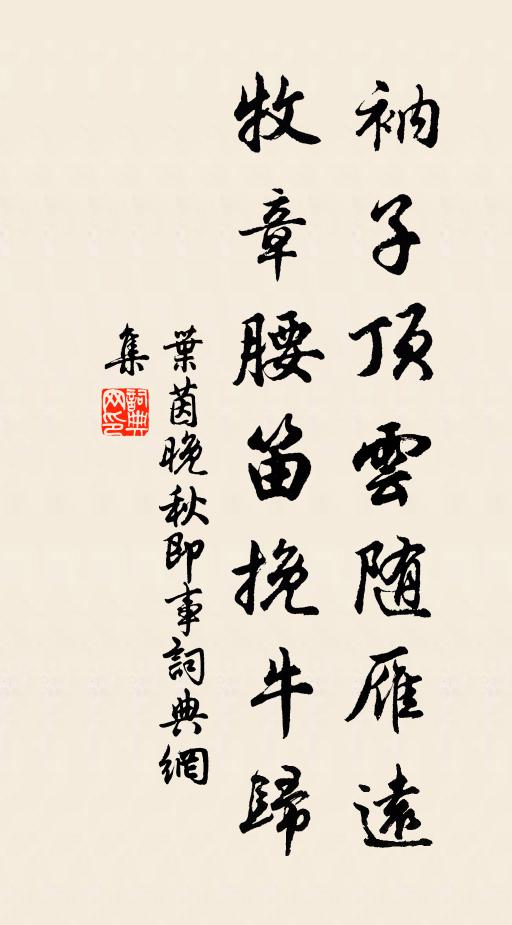 衲子頂雲随雁遠
牧章腰笛挽牛歸
葉茵晚秋即事詞典網
集
詞典
网印